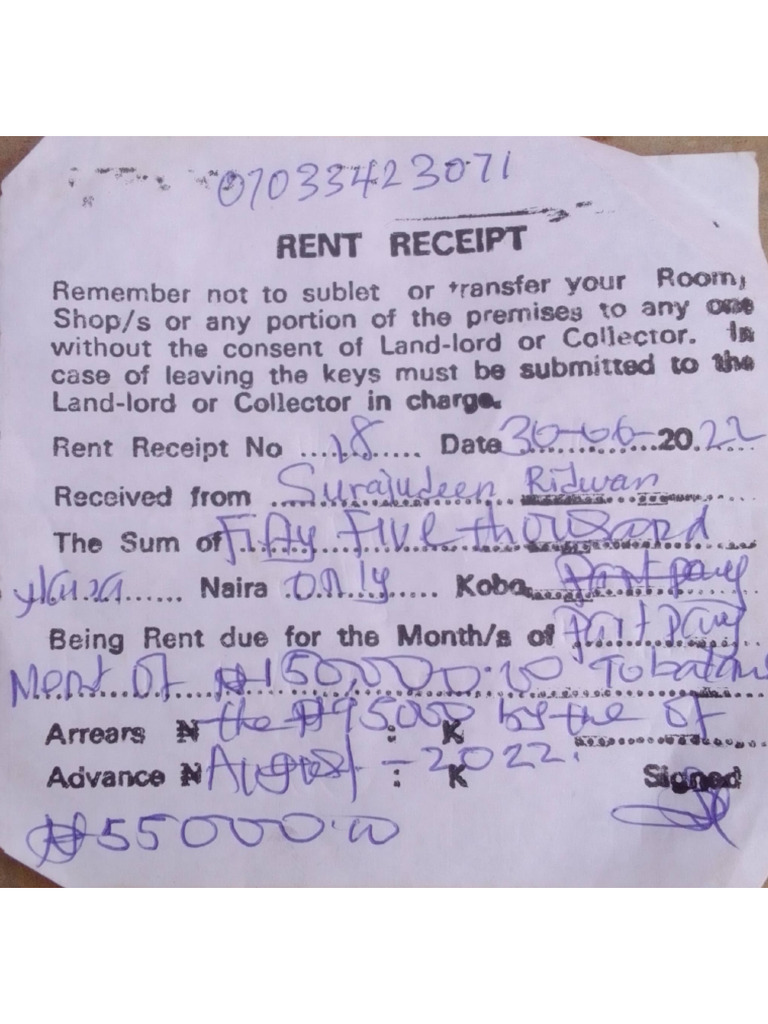 07033423071
RENT RECEIPT
Remember not to sublet or transfer your Room,
Shop/s or any portion of the premises to any one
without the consent of Land-lord or Collector. In
case of leaving the keys must be submitted to the
Land-lord or Collector in charge.
Rent Receipt No ....18...... Date 30-06-2022
Received from Surajudeen Ridwan
The Sum of Fifty Five thousand
Naira only Kobo
Being Rent due for the Month/s of Part pay
Ment of ₦150,000.00 To balans
Arrears ₦ the ₦95000 : K by the of
Advance ₦ August - 2022. : K Signed
₦55000.00